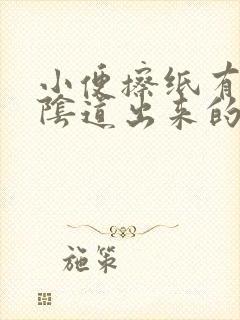 小便擦纸有
陰道出来的
施策